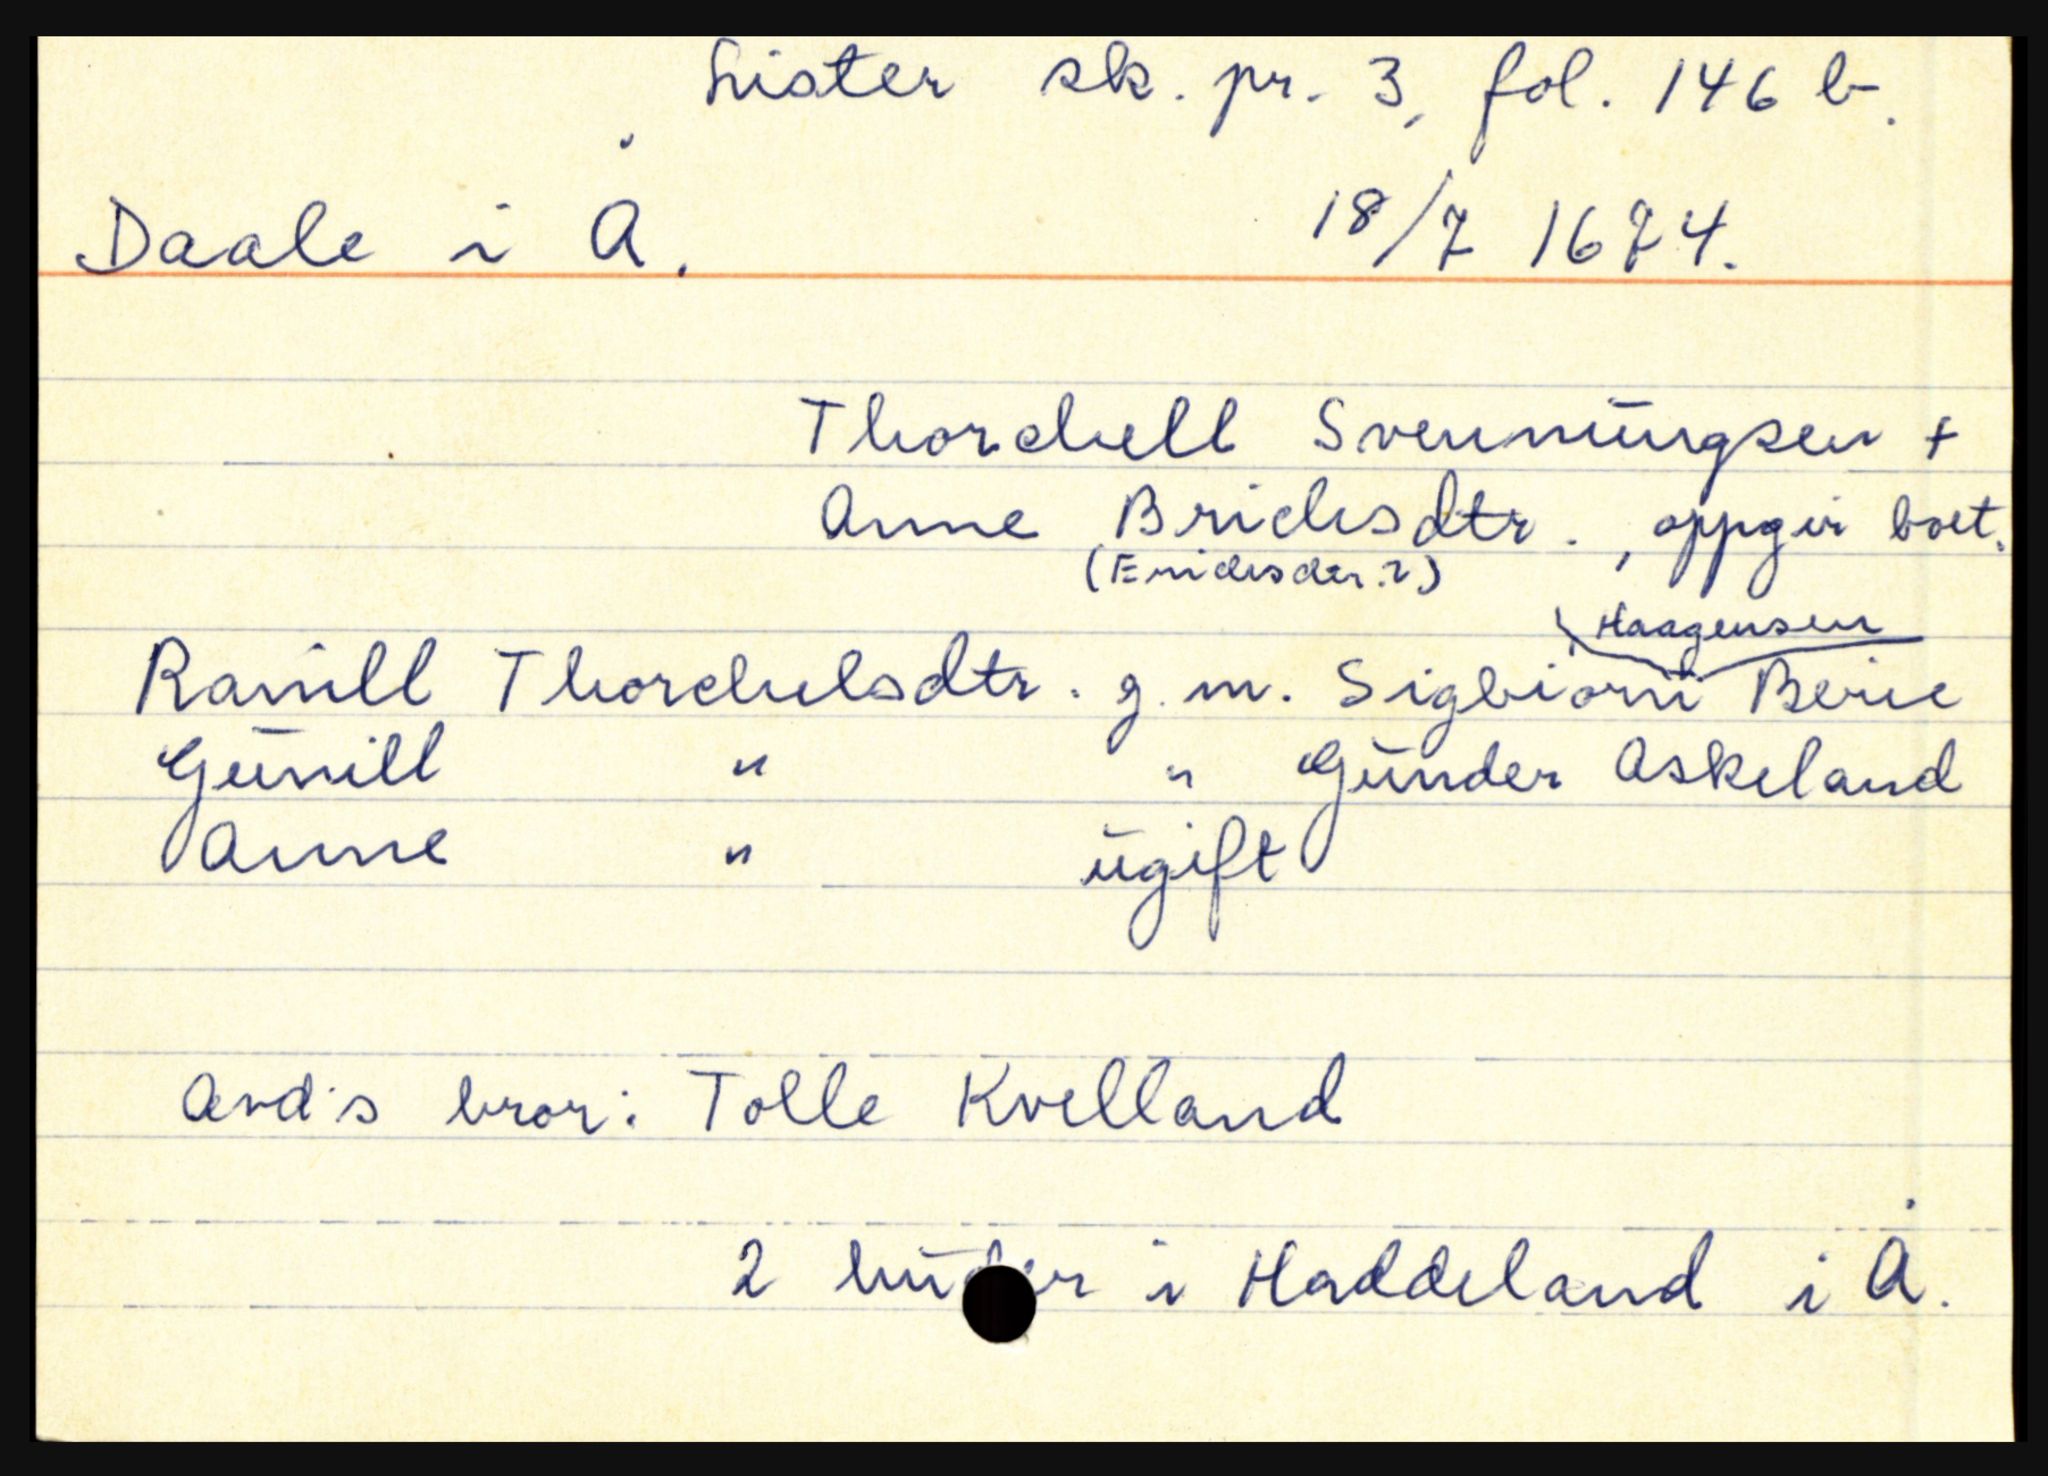 Lister sk. pr. 3, fol. 146 b.
Daale i Å. 18/7 1674.
Thorchell Svennungsen +
Anne Brichsdtr., oppgir boet.
(Erichsdtr.?)
Haagensen
Ranill Thorchelsdtr. g. m. Sigbiørn Berie
Gunill " " Gunder Askeland
Anne " ugift
Avd's bror: Tolle Kvelland
2 huder i Haddeland i Å.